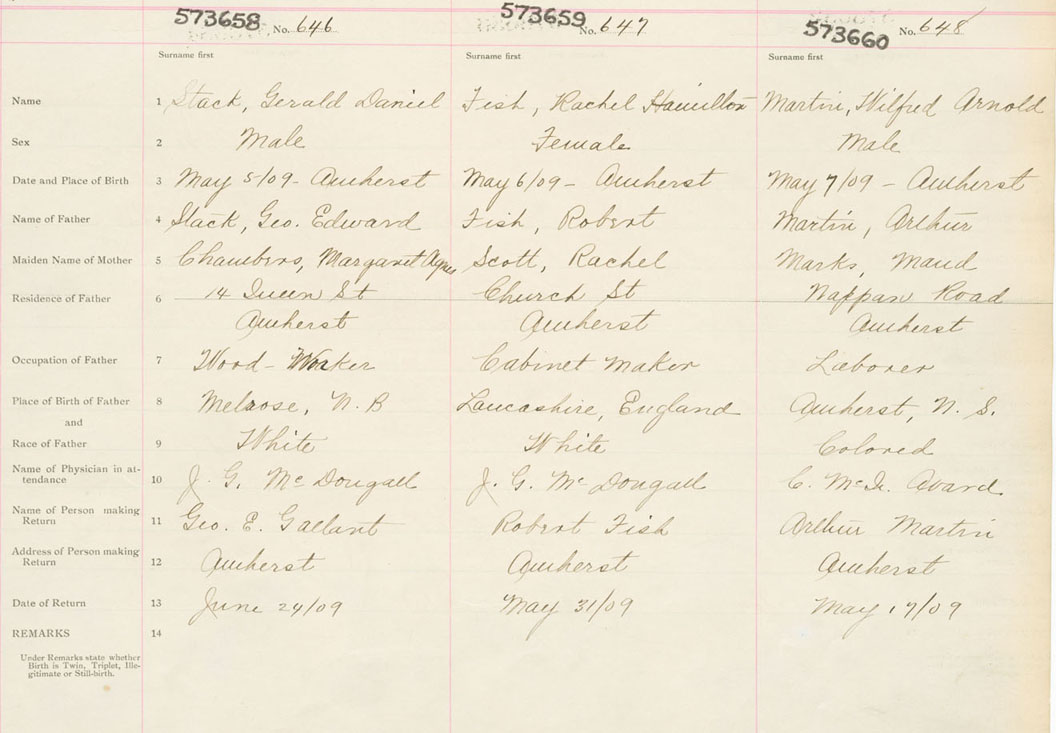 573658 No. 646 573659 No. 647 573660 No. 648
Surname first Surname first Surname first
Name 1 Stack, Gerald Daniel Fish, Rachel Hamilton Martin, Wilfred Arnold
Sex 2 Male Female Male
Date and Place of Birth 3 May 5/09 - Amherst May 6/09 - Amherst May 7/09 - Amherst
Name of Father 4 Stack, Geo. Edward Fish, Robert Martin, Arthur
Maiden Name of Mother 5 Chambers, Margaret Agnes Scott, Rachel Marks, Maud
Residence of Father 6 14 Queen St Church St Nappan Road
Amherst Amherst Amherst
Occupation of Father 7 Wood-Worker Cabinet Maker Laborer
Place of Birth of Father 8 Melrose, N. B Lancashire, England Amherst, N. S.
and
Race of Father 9 White White Colored
Name of Physician in at-
tendance 10 J. G. McDougall J. G. McDougall C. McQ. Avard
Name of Person making
Return 11 Geo. E. Gallant Robert Fish Arthur Martin
Address of Person making
Return 12 Amherst Amherst Amherst
Date of Return 13 June 24/09 May 31/09 May 17/09
REMARKS 14
Under Remarks state whether
Birth is Twin, Triplet, Ille-
gitimate or Still-birth.